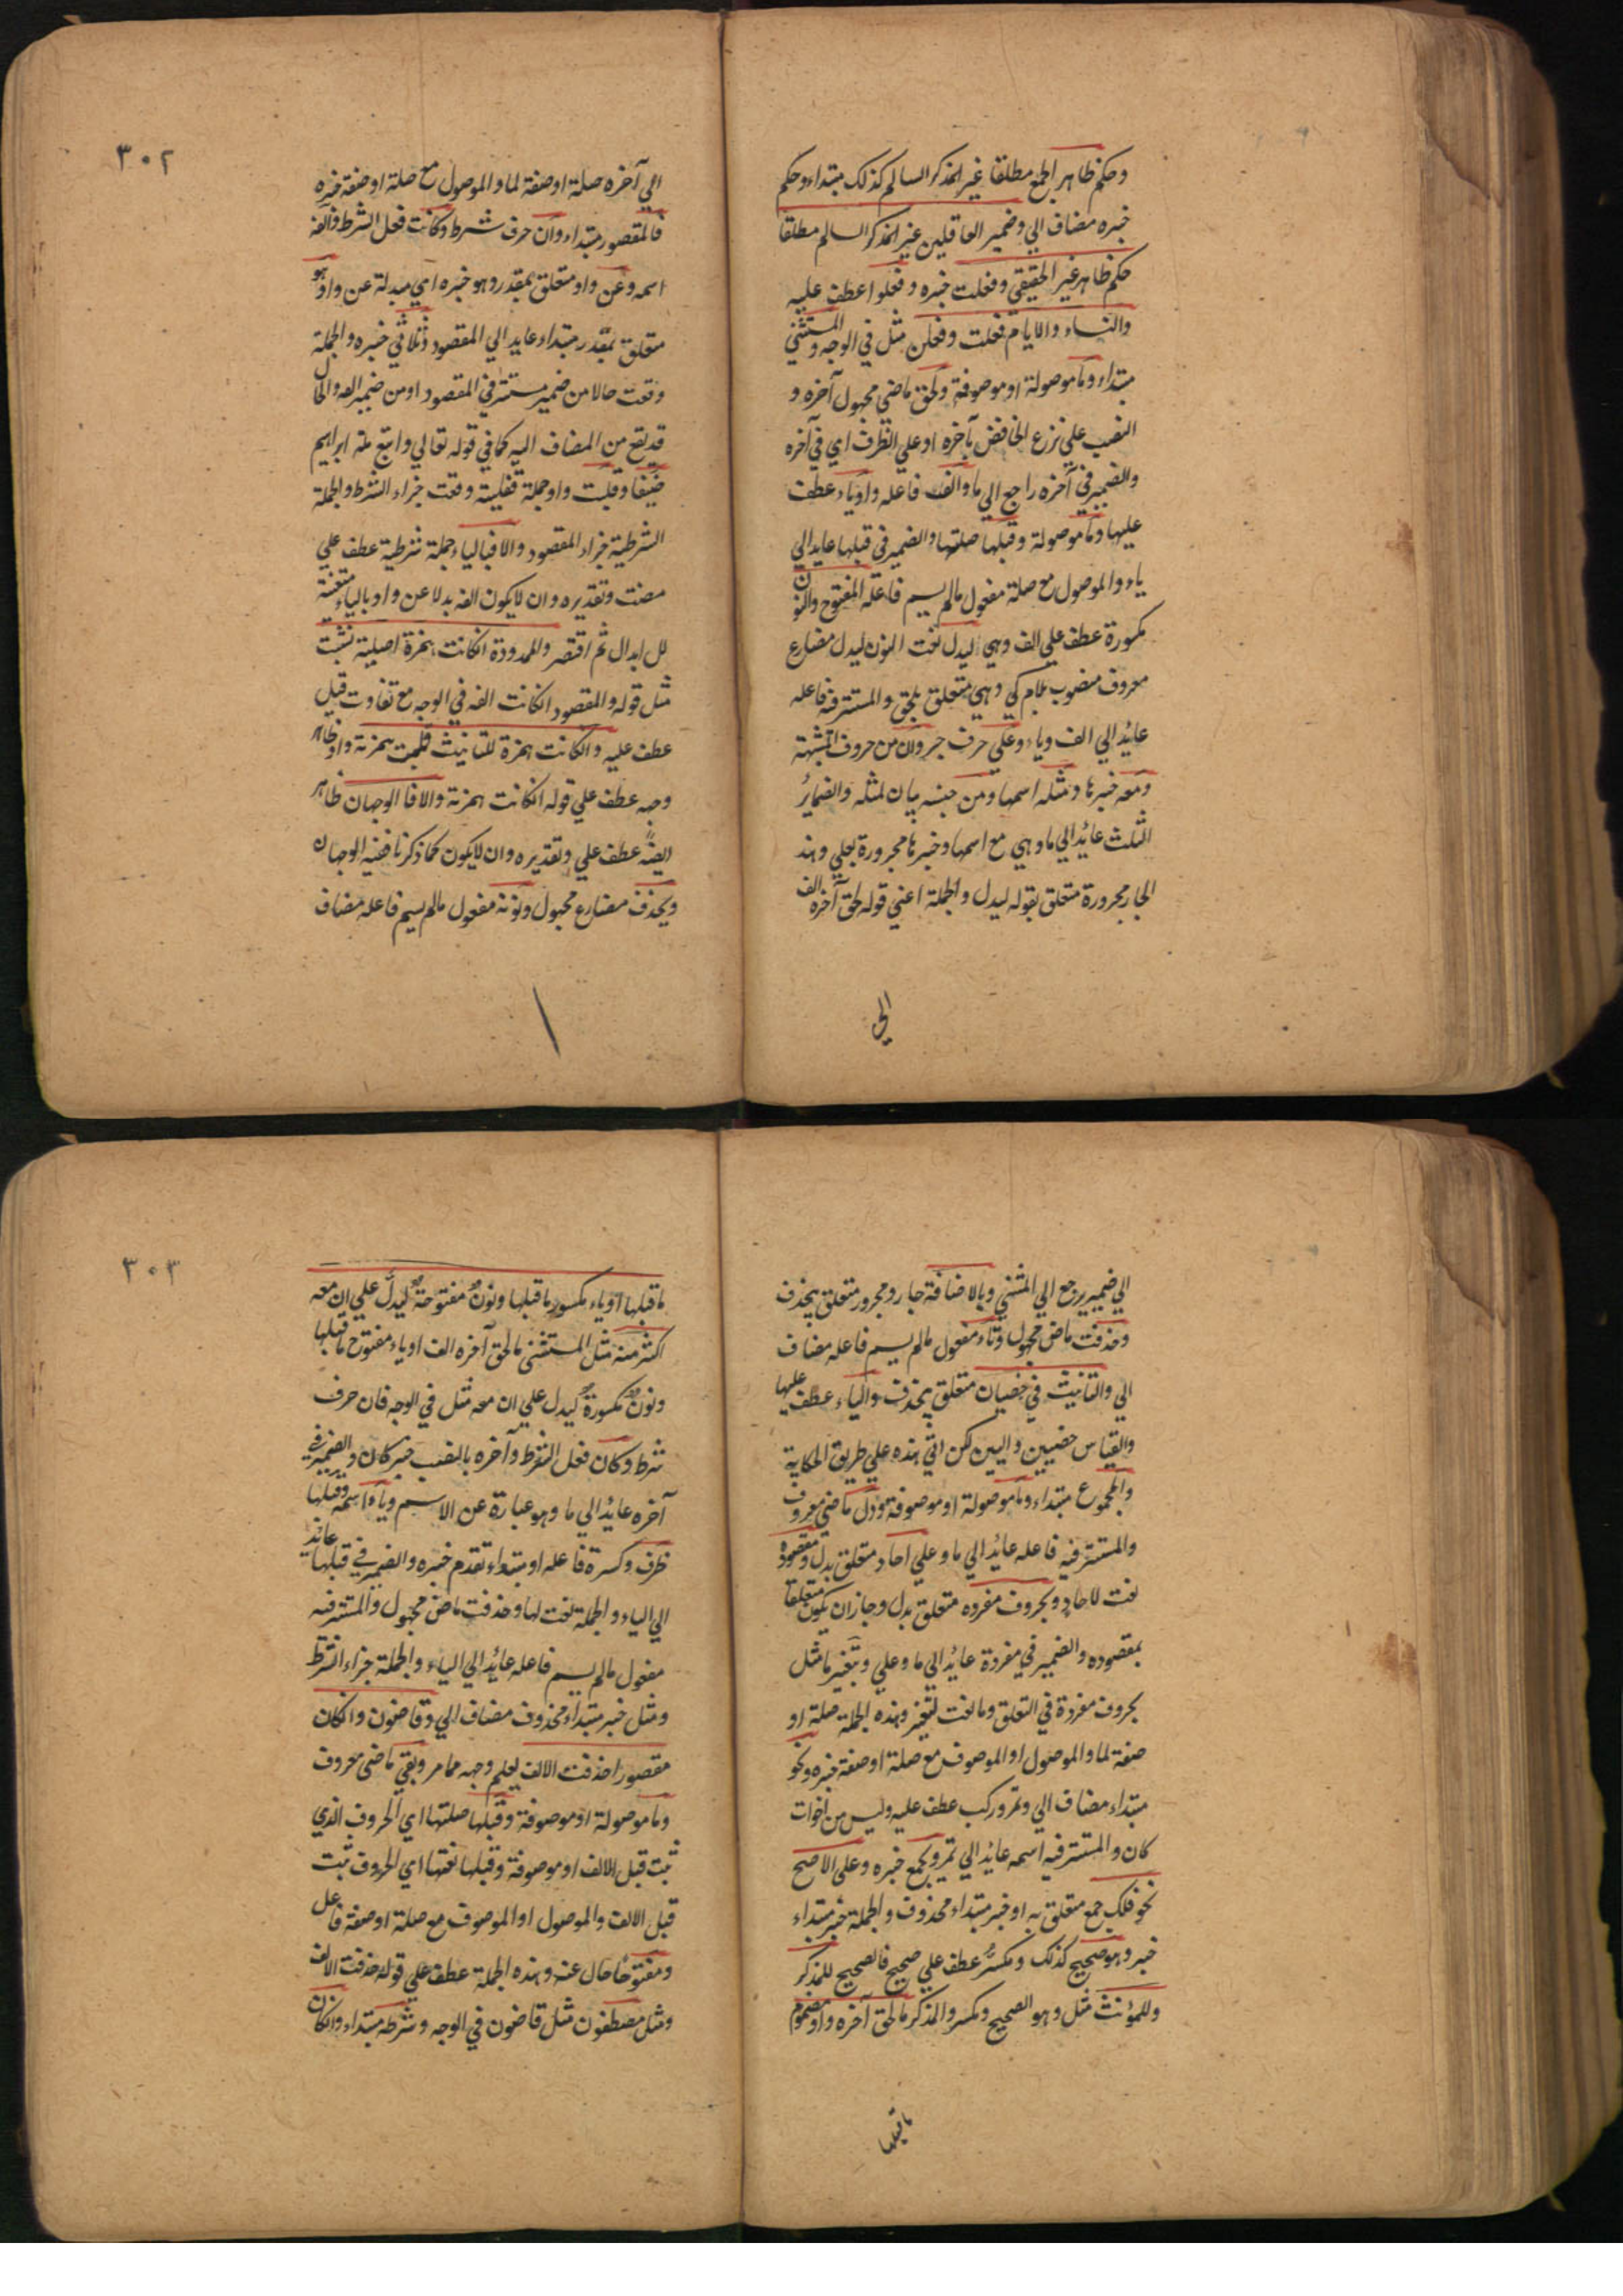 وحكم ظاهر الجمع مطلقا غير المذكر السالم كذلك مبتداء وحكم
خبره مضاف الي وضمير العاقلين غير المذكر السالم مطلقا
حكم ظاهر غير الحقيقي وفعلت خبره وفعلوا عطف عليه
والنساء والايام فعلت وفعلن مثل في الوجه والمثني
مبتداء وما موصولة او موصوفة ولحق ماضي مجهول آخره و
النصب علي نزع الخافض بآخره او علي الظرف اي في آخره
والضمير في آخره راجع الي ما والف فاعله او ياء عطف
عليها وما موصولة وقبلها صلتها والضمير في قبلها عايد الي
ياء والموصول مع صلة مفعول مالم يسم فاعله المفتوح والنون
مكسورة عطف علي الف وهي ليدل نعت النون ليدل مضارع
معروف منصوب بلام كي وهي متعلق بلحق والمستتر فيه فاعله
عائد الي الف وياء وعلي حرف جر وان من حروف المشبهة
ومعه خبرها ومثله اسمها ومن جنسه بيان لمثله والضمائر
الثلث عائد الي ما وهي مع اسمها وخبرها مجرورة بعلي وهذ
الجار مجرورة متعلق بقوله ليدل والجملة اعني قوله لحق آخره الف
الي
٣٠٢
الي آخره صلة او صفة لما والموصول مع صلة او صفة خبره
فالمقصور مبتداء وان حرف شرط وكانت فعل الشرط والفه
اسمه وعن واو متعلق بمقدر وهو خبره اي مبدلة عن واو وهو
متعلق بمقدر مبتداء عايد الي المقصود وثلاثي خبره والجملة
وقعت حالا من ضمير مستتر في المقصود او من ضمير الفه والحال
قد يقع من المضاف اليه كما في قوله تعالي واتبع ملة ابراهيم
حنيفا وقلبت واو جملة فعلية وقعت جزاء الشرط والجملة
الشرطية جزاء المقصود والا فبالياء جملة شرطية عطف علي
مضت وتقديره وان لا يكون الفه بدلا عن واو بالياء متعينة
لل ابدال ثم اقتصر والممدودة انكانت همزة اصلية تثبت
مثل قوله والمقصود انكانت الفه في الوجه مع تفاوت قيل
عطف عليه وانكانت همزة للتانيث قلبت همزته واو ظاهر
وجه عطف علي قوله انكانت همزته والا فا الوجهان ظاهر
ايضًا عطف علي وتقديره وان لا يكون كما ذكرنا ففيه الوجهان
ويحذف مضارع مجهول ونونه مفعول مالم يسم فاعله مضاف
الي ضمير يرجع الي المثني وبالاضافة جار ومجرور متعلق بيحذف
وحذفت ماض مجهول وتاء مفعول مالم يسم فاعله مضاف
الي والتانيث في خصيان متعلق بيحذف والياء عطف عليها
والقياس خصيين واليين لكن اتي هذه علي طريق الحكاية
والمجموع مبتداء وما موصولة او موصوفة ودل ماضي معروف
والمستتر فيه فاعله عائد الي ما وعلي احاد متعلق بدل ومقصوده
نعت للاحاد وبحروف مفرده متعلق بدل وجاز ان يكون متعلقا
بمقصوده والضمير في مفردة عائد الي ما وعلي وبتغير ما مثل
بحروف مفردة في التعلق وما نعت لتغير وهذه الجملة صلة او
صفة لما والموصول او الموصوف مع صلة او صفة خبره ونحو
مبتداء مضاف الي وتمر وركب عطف عليه وليس من اخوات
كان والمستتر فيه اسمه عائد الي تمر وبجمع خبره وعلي الاصح
نحو فلك جمع متعلق به او خبر مبتداء محذوف والجملة خبر مبتداء
خبر وهو صحيح كذلك ومكسرٌ عطف علي صحيح فالصحيح للمذكر
وللمؤنث مثل وهو الصحيح ومكسر والمذكر ما لحق آخره واو مضموم
ماقبلها
٣٠٣
ماقبلها او ياء مكسور ماقبلها ونونٌ مفتوحةٌ ليدل علي ان معه
اكثر منه مثل المستثني مالحق آخره الف او ياء مفتوح ماقبلها
ونون مكسورة ليدل علي ان معه مثل في الوجه فان حرف
شرط وكان فعل الشرط وآخره بالنصب خبر كان والضمير في
آخره عائد الي ما وهو عبارة عن الاسم وياء اسمه وقبلها
ظرف وكسرة فاعله او مبتداء تقدم خبره والضمير في قبلها عائد
الي الياء والجملة نعت لها وحذفت ماض مجهول والمستتر فيه
مفعول مالم يسم فاعله عائد الي الياء والجملة جزاء الشرط
ومثل خبر مبتداء محذوف مضاف الي وقاضون وانكان
مقصورا حذفت الالف يعلم وجهه مما مر وبقي ماضي معروف
وما موصولة او موصوفة وقبلها صلتها اي الحروف الذي
ثبت قبل الالف او موصوفة وقبلها نعتها اي الحروف ثبت
قبل الالف والموصول او الموصوف مع صلة او صفة فاعل
ومفتوحًا حال عنه وهذه الجملة عطف علي قوله حذفت الالف
ومثل مصطفون مثل قاضون في الوجه وشرطه مبتداء وانكان